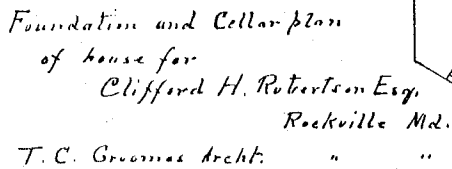 Foundation and Cellar plan
of house for
Clifford H. Robertson Esq.
Rockville Md.
T. C. Groomes Archt. " "